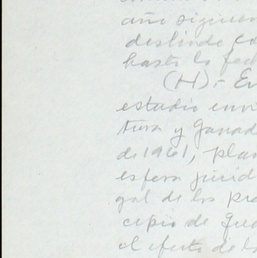 año siguien
deslinde co
hasta la fech
(H)- En
estadio envi
tura y Ganad
de 1961, plan
esfera juríd
gal de los pre
cipio de Gua
el efecto de la